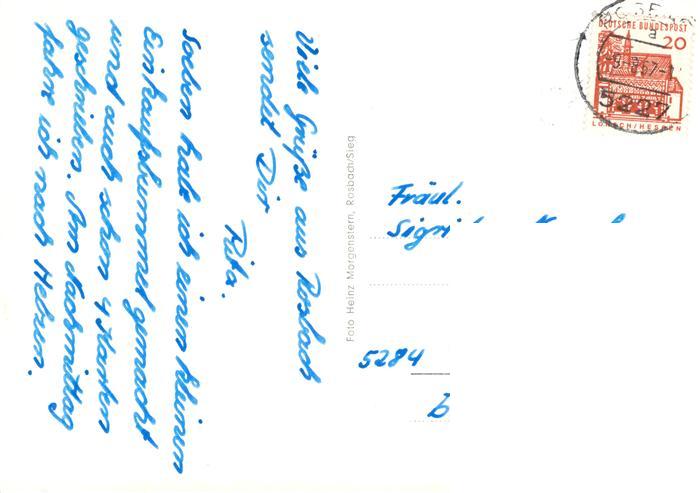 Viele Grüße aus Rosbach
sendet Dir
Rita.
Soeben habe ich einen kleinen
Einkaufsbummel gemacht
und auch schon 4 Karten
geschrieben. Am Nachmittag
fahre ich nach Hebrun.
Foto Heinz Morgenstern, Rosbach/Sieg
DEUTSCHE BUNDESPOST
20
LORSCH/HESSEN
-9.-8.67-1
a
5227
Fräul.
Sigri
5284